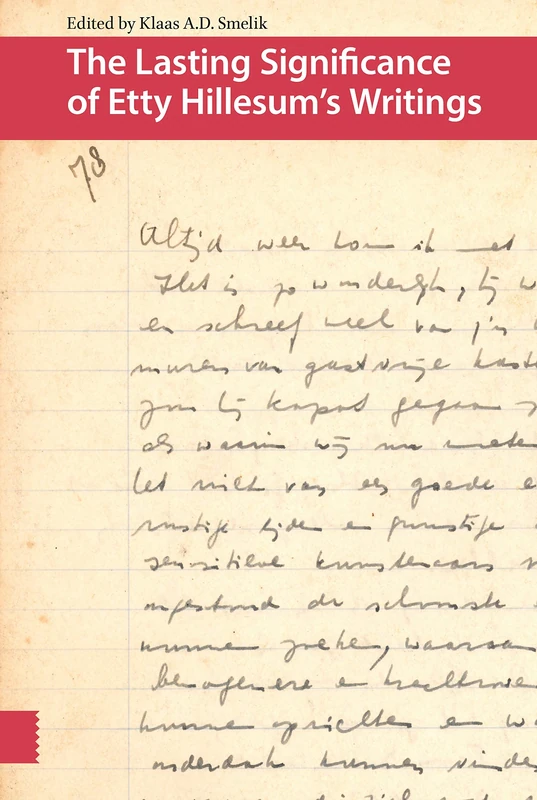 Edited by Klaas A.D. Smelik
The Lasting Significance
of Etty Hillesum's Writings
78
Altijd weer kom ik met
Het is zo wonderlijk, hij w
en schreef veel van z'n
muren van gastvrije kaste
zou hij kapot gegaan z
als waarin wij nu moeten
het niet van een goede e
rustige tijden en gunstige
sensitieve kunstenaars
ongestoord de schoonste
kunnen zoeken, waaraan
bewogener en krachtrove
kunnen oprichten en wa
onderdak kunnen vinden